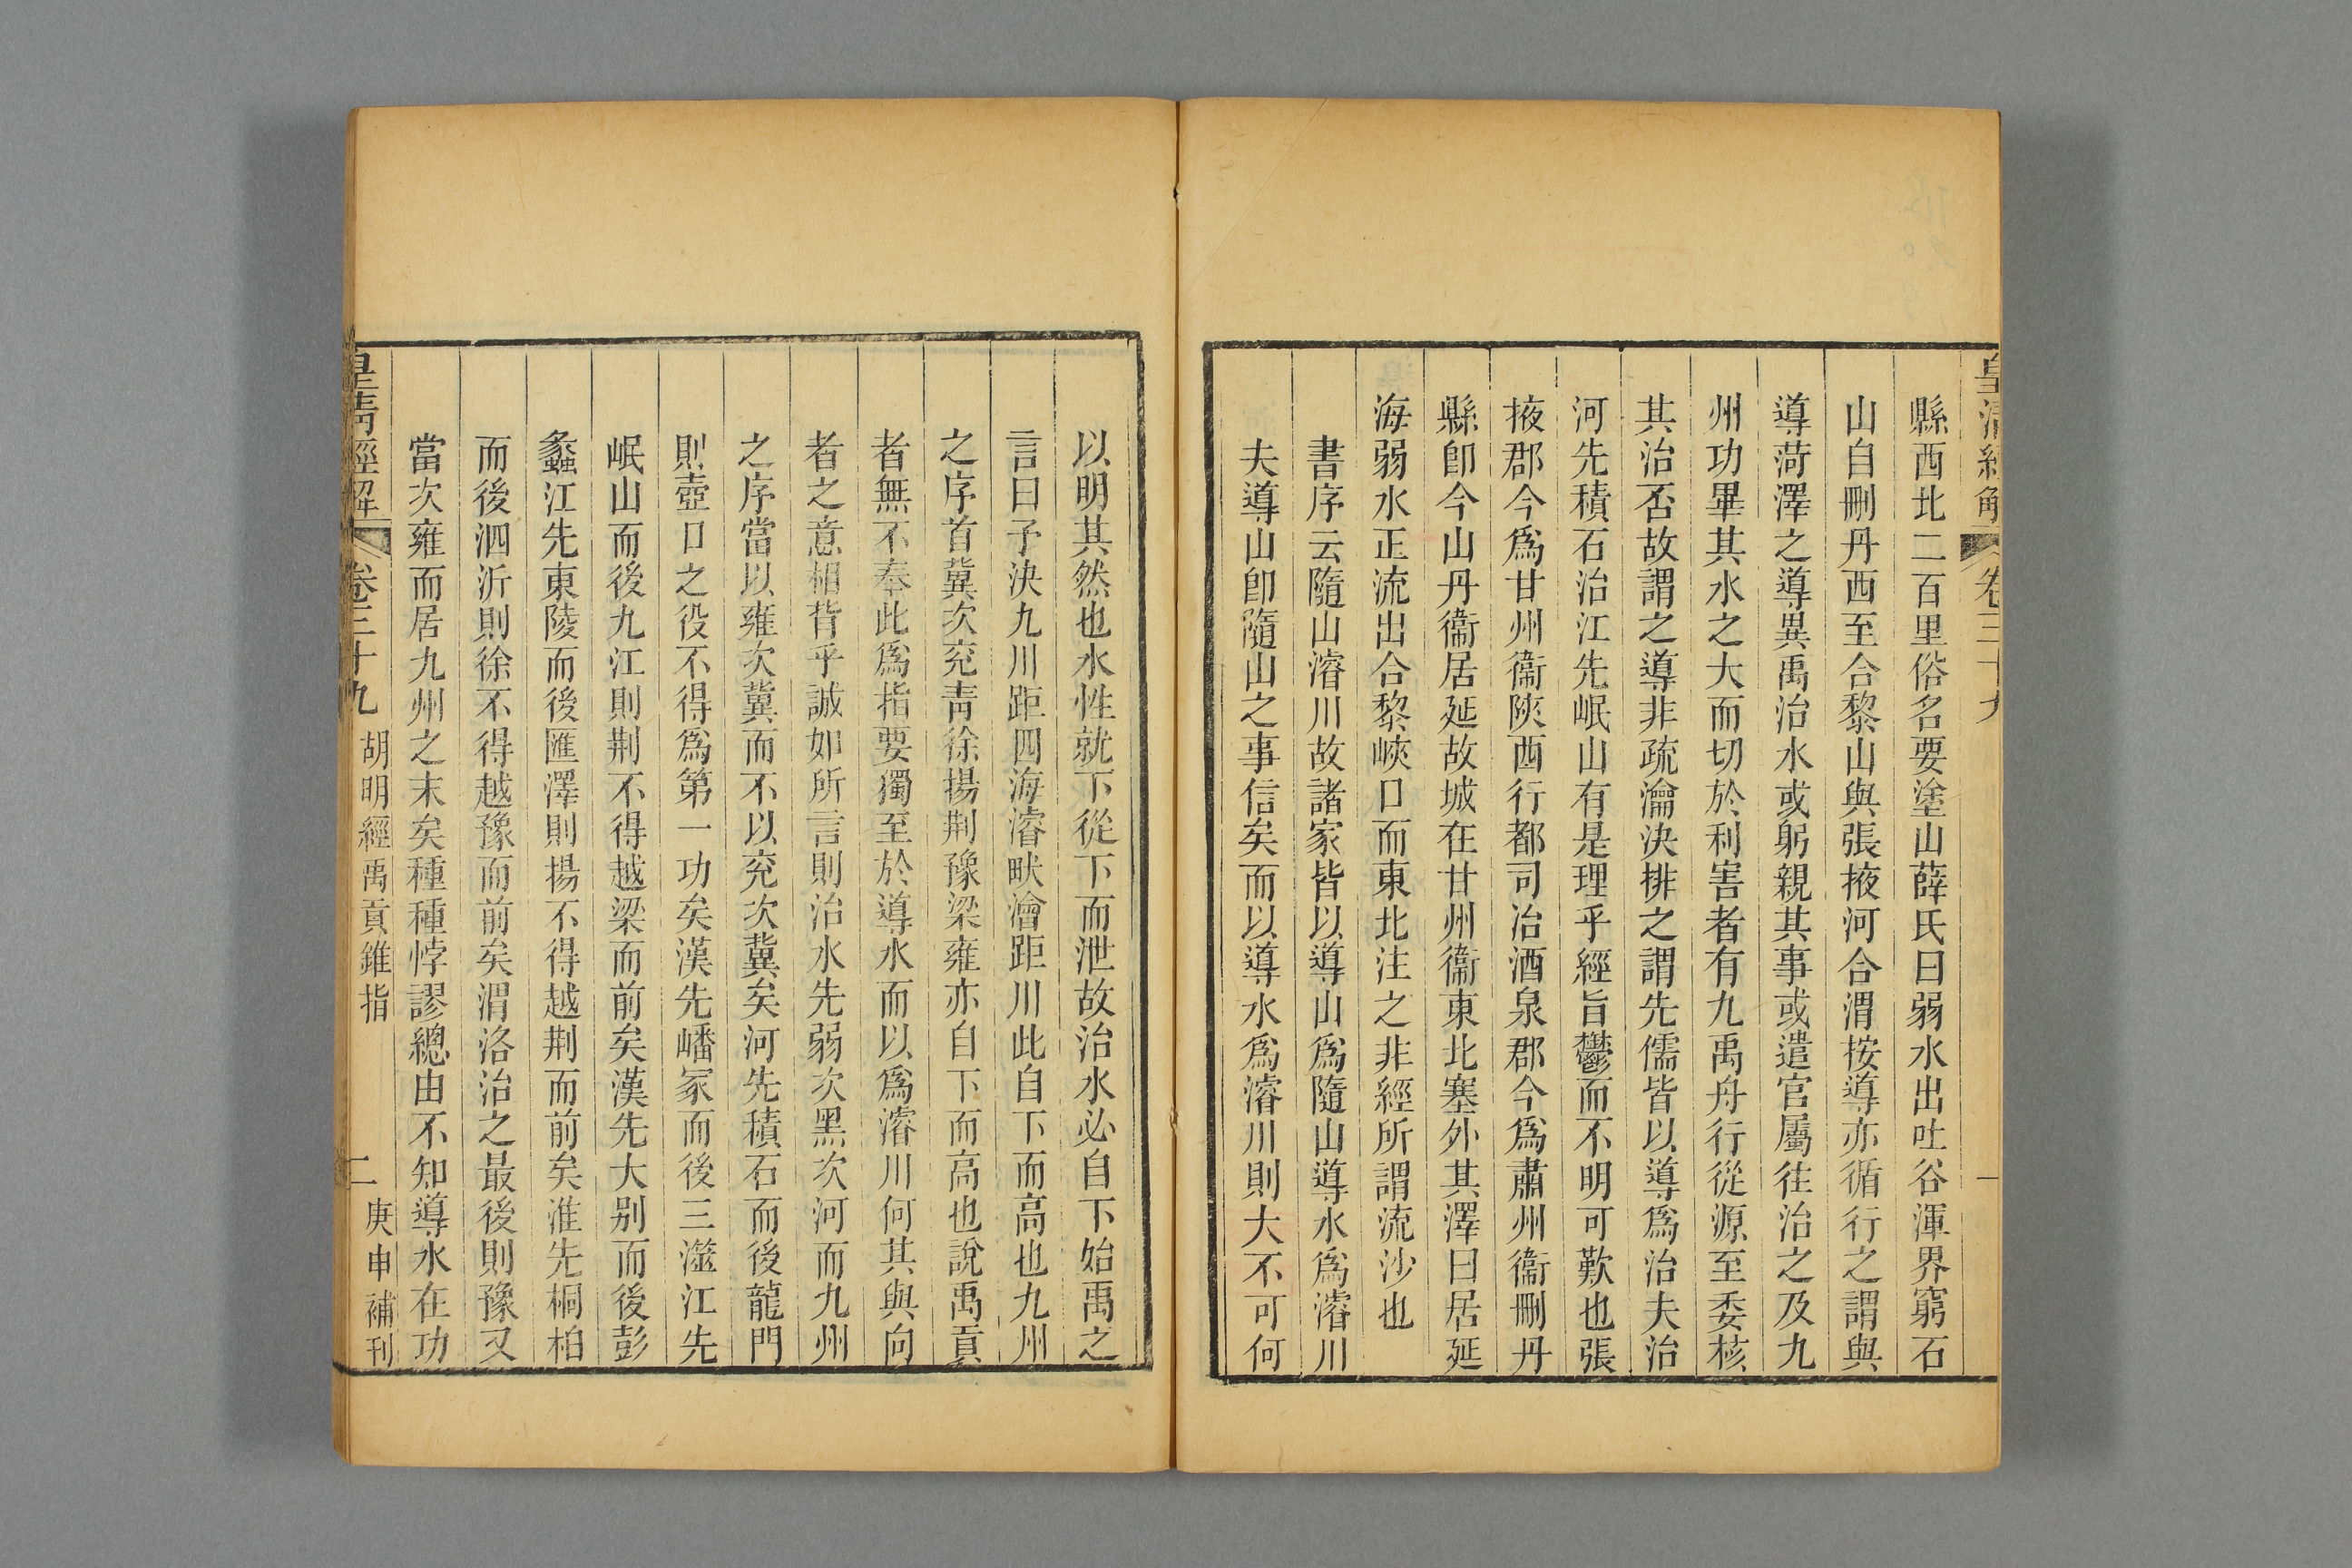 皇清經解
卷三十九
一
縣西北二百里俗名要塗山薛氏曰弱水出吐谷渾界窮石
山自刪丹西至合黎山與張掖河合渭按導亦循行之謂與
導菏澤之導異禹治水或躬親其事或遣官屬往治之及九
州功畢其水之大而切於利害者有九禹舟行從源至委核
其治否故謂之導非疏瀹決排之謂先儒皆以導爲治夫治
河先積石治江先岷山有是理乎經旨鬱而不明可歎也張
掖郡今爲甘州衞陝西行都司治酒泉郡今爲肅州衞刪丹
縣卽今山丹衞居延故城在甘州衞東北塞外其澤曰居延
海弱水正流出合黎峽口而東北注之非經所謂流沙也
書序云隨山濬川故諸家皆以導山爲隨山導水爲濬川
夫導山卽隨山之事信矣而以導水爲濬川則大不可何
以明其然也水性就下從下而泄故治水必自下始禹之
言曰予決九川距四海濬畎澮距川此自下而高也九州
之序首冀次兗靑徐揚荆豫梁雍亦自下而高也說禹貢
者無不奉此爲指要獨至於導水而以爲濬川何其與向
者之意相背乎誠如所言則治水先弱次黑次河而九州
之序當以雍次冀而不以兗次冀矣河先積石而後龍門
則壺口之役不得爲第一功矣漢先嶓冢而後三澨江先
岷山而後九江則荆不得越梁而前矣漢先大别而後彭
蠡江先東陵而後匯澤則揚不得越荆而前矣淮先桐柏
而後泗沂則徐不得越豫而前矣渭洛治之最後則豫又
當次雍而居九州之末矣種種悖謬總由不知導水在功
皇清經解
卷三十九
胡明經禹貢錐指
二
庚申補刊